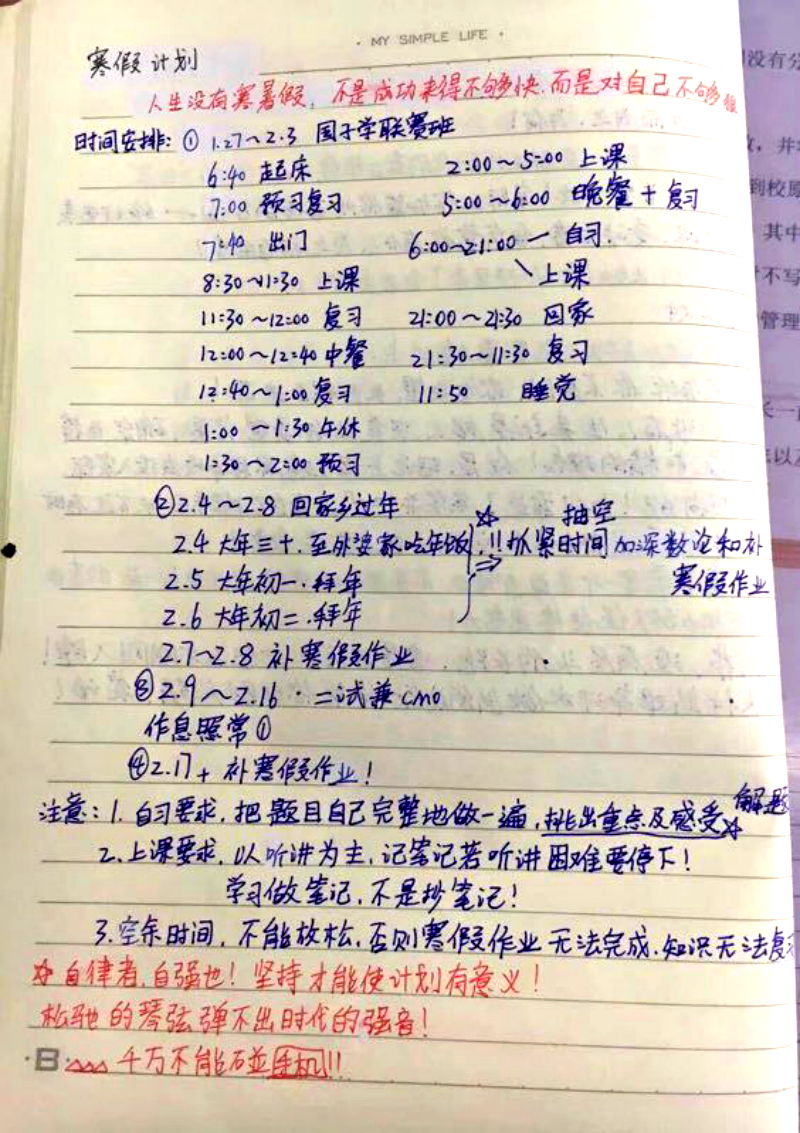 · MY SIMPLE LIFE ·
寒假计划
人生没有寒暑假，不是成功来得不够快.而是对自己不够狠
时间安排：① 1.27～2.3 国子学联赛班
6:40 起床
7:00 预习复习
7:40 出门
8:30～11:30 上课
11:30～12:00 复习
12:00～12:40 中餐
12:40～1:00 复习
1:00～1:30 午休
1:30～2:00 预习
2:00～5:00 上课
5:00～6:00 晚餐+复习
6:00～21:00 — 自习.
\ 上课
21:00～21:30 回家
21:30～11:30 复习
11:50 睡觉
②2.4～2.8 回家乡过年
2.4 大年三十.至外婆家吃年饭
2.5 大年初一.拜年
2.6 大年初二.拜年
☆ 抽空
!!抓紧时间加深数论和补
⇒ 寒假作业
2.7～2.8 补寒假作业
③2.9～2.16.二试兼CMO
作息照常①
④2.17+ 补寒假作业！
注意：1.自习要求.把题目自己完整地做一遍,挑出重点及感受☆解题
2.上课要求.以听讲为主,记笔记若听讲困难要停下！
学习做笔记,不是抄笔记！
3.空余时间,不能放松,否则寒假作业无法完成.知识无法复习
☆自律者,自强也！坚持才能使计划有意义！
松驰的琴弦弹不出时代的强音！
·B· 千万不能碰手机!!
没有分
，并
到校
其中
不写
管理
长一
以及